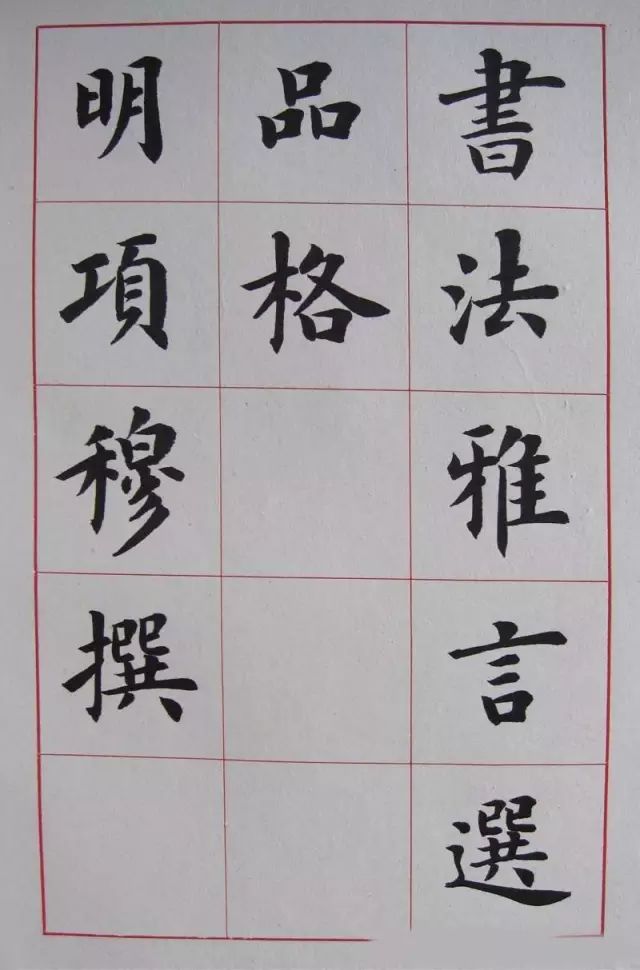 書法雅言選
品格
明項穆撰